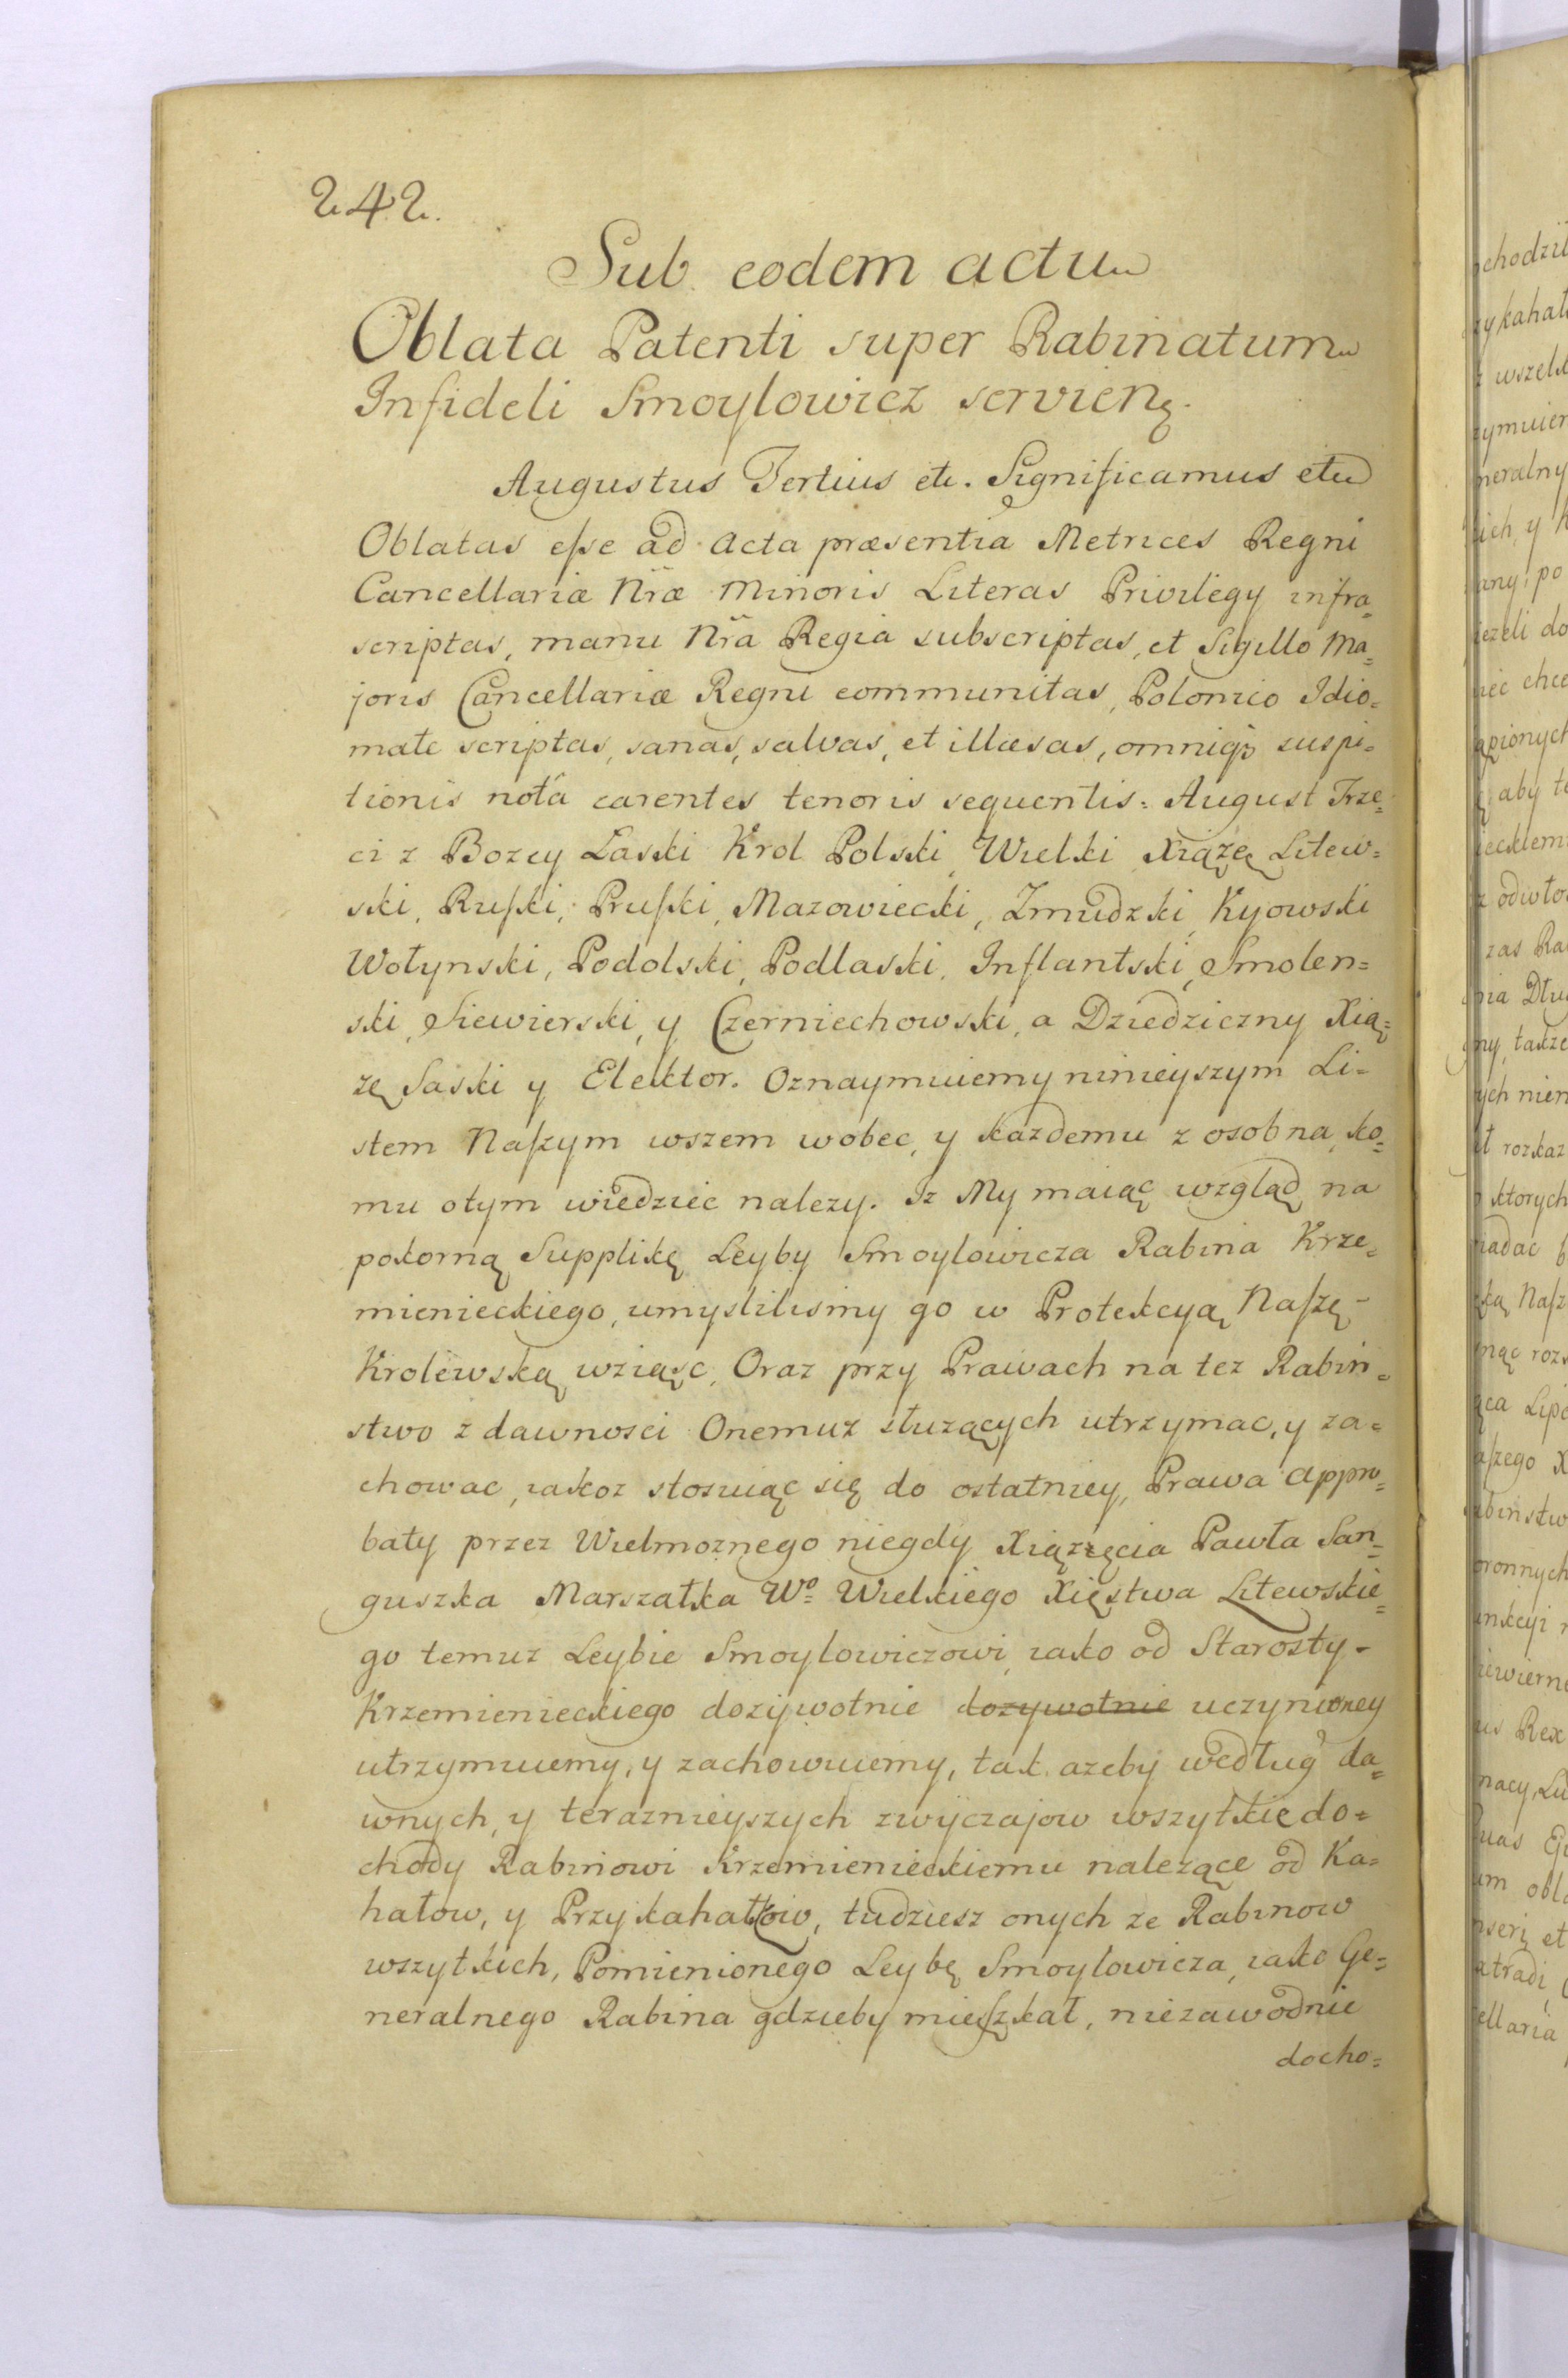 242.
Sub eodem actu
Oblata Patenti super Rabinatum
Infideli Smoylowicz servien.
Augustus Tertius etc. Significamus etc
Oblatas eſse ad Acta præsentia Metrices Regni
Cancellariæ Nr̃æ Minoris Literas Privilegy infra=
scriptas, manu Nr̃a Regia subscriptas, et Sigillo Ma=
joris Cancellariæ Regni communitas, Polonico Idio=
mate scriptas, sanas, salvas, et illæsas, omniq; suspi=
tionis notâ carentes tenoris sequentis: August Trze=
ci z Bozey Łaski Krol Polski, Wielki Xiąże Litew=
ski, Ruſki, Pruſki, Mazowiecki, Zmudzki, Kyowski
Wołynski, Podolski, Podlaski, Inflantski, Smolen=
ski, Siewierski, y Czerniechowski, a Dziedziczny Xią=
zę Saski y Elektor. Oznaymuiemy ninieyszym Li=
stem Naſzym wszem wobec, y kazdemu z osobna, ko=
mu otym wiedziec nalezy. Iz My maiąc wzgląd na
pokorną Supplikę Leyby Smoylowicza Rabina Krze=
mienieckiego, umyslilismy go w Protekcyą Naſzę
Krolewską wziąsc, Oraz przy Prawach na tez Rabin=
stwo z dawnosci Onemuz słuzących utrzymac, y za=
chowac, iakoz stosuiąc się do ostatniey, Prawa appro=
baty przez Wielmoznego niegdy Xiązęcia Pawła San=
guszka Marszałka Wo Wielkiego Xięstwa Litewskie=
go temuz Leybie Smoylowiczowi, iako od Starosty
Krzemienieckiego dozywotnie dozywotnie uczynioney
utrzymuiemy, y zachowuiemy, tak azeby według da=
wnych, y teraznieyszych zwyczajow wszytkie do=
chody Rabinowi Krzemienieckiemu nalezące od Ka=
hałow, y Przykahałkow, tudziesz onych ze Rabinow
wszytkich, Pomienionego Leybę Smoylowicza, iako Ge=
neralnego Rabina gdzieby mieſzkał, niezawodnie
docho=